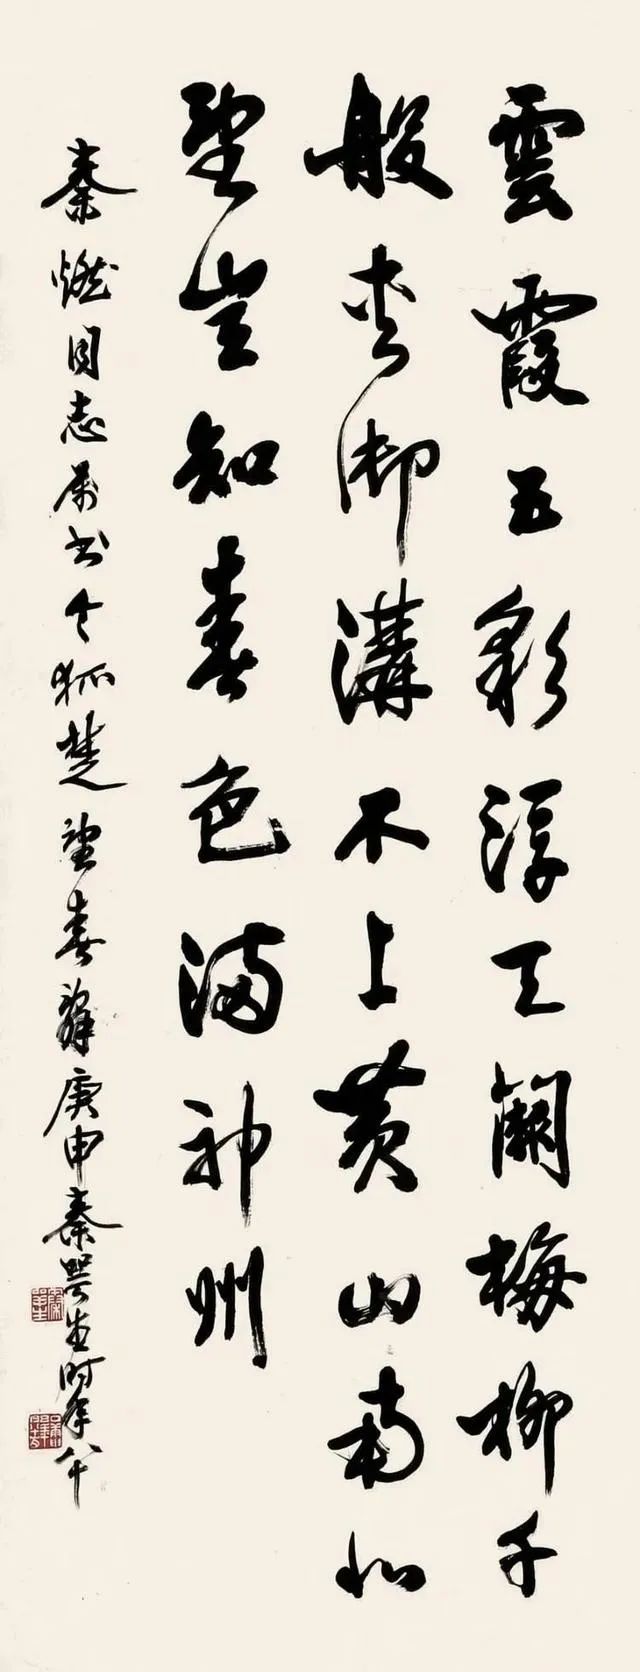 雲霞五彩浮天闕梅柳千
般夾御溝不上黃山南北
望豈知春色滿神州
秦燃同志属书令狐楚望春辭庚申秦咢生时年八十